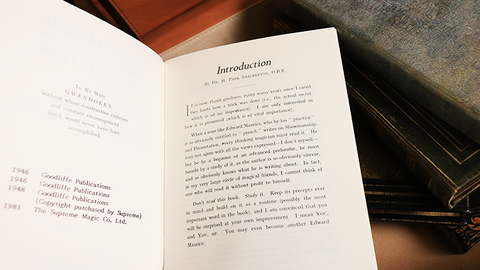 To My Wife
GWENDOLEN
without whose constructive criticism
and constant encouragement
this work would never have been
accomplished.
1946 Goodliffe Publications
1946 Goodliffe Publications
1948 Goodliffe Publications
(Copyright purchased by Supreme)
1983 The Supreme Magic Co. Ltd.
Introduction
By Dr. H. Park Shackleton, O.B.E.
It is now, thank goodness, many many years since I cared
two hoots how a trick was done (i.e. the actual secret
which is of no importance). I am only interested in
how it is presented (which is of vital importance).
When a man like Edward Maurice, who by his "practice"
is so obviously entitled to "preach," writes on Showmanship
and Presentation, every thinking magician must read it. He
may not agree with all the views expressed—I don't myself—
but be he a beginner or an advanced performer, he must
benefit by a study of it, as the author is so obviously sincere,
and so obviously knows what he is writing about. In fact,
in my very large circle of magical friends, I cannot think of
one who will read it without profit to himself.
Don't read this book. Study it. Keep its precepts ever
in mind and build on it as a routine (possibly the most
important word in the book), and I am convinced that you
will be surprised at your own improvement. I mean You,
and You, sir. You may even become another Edward
Maurice.